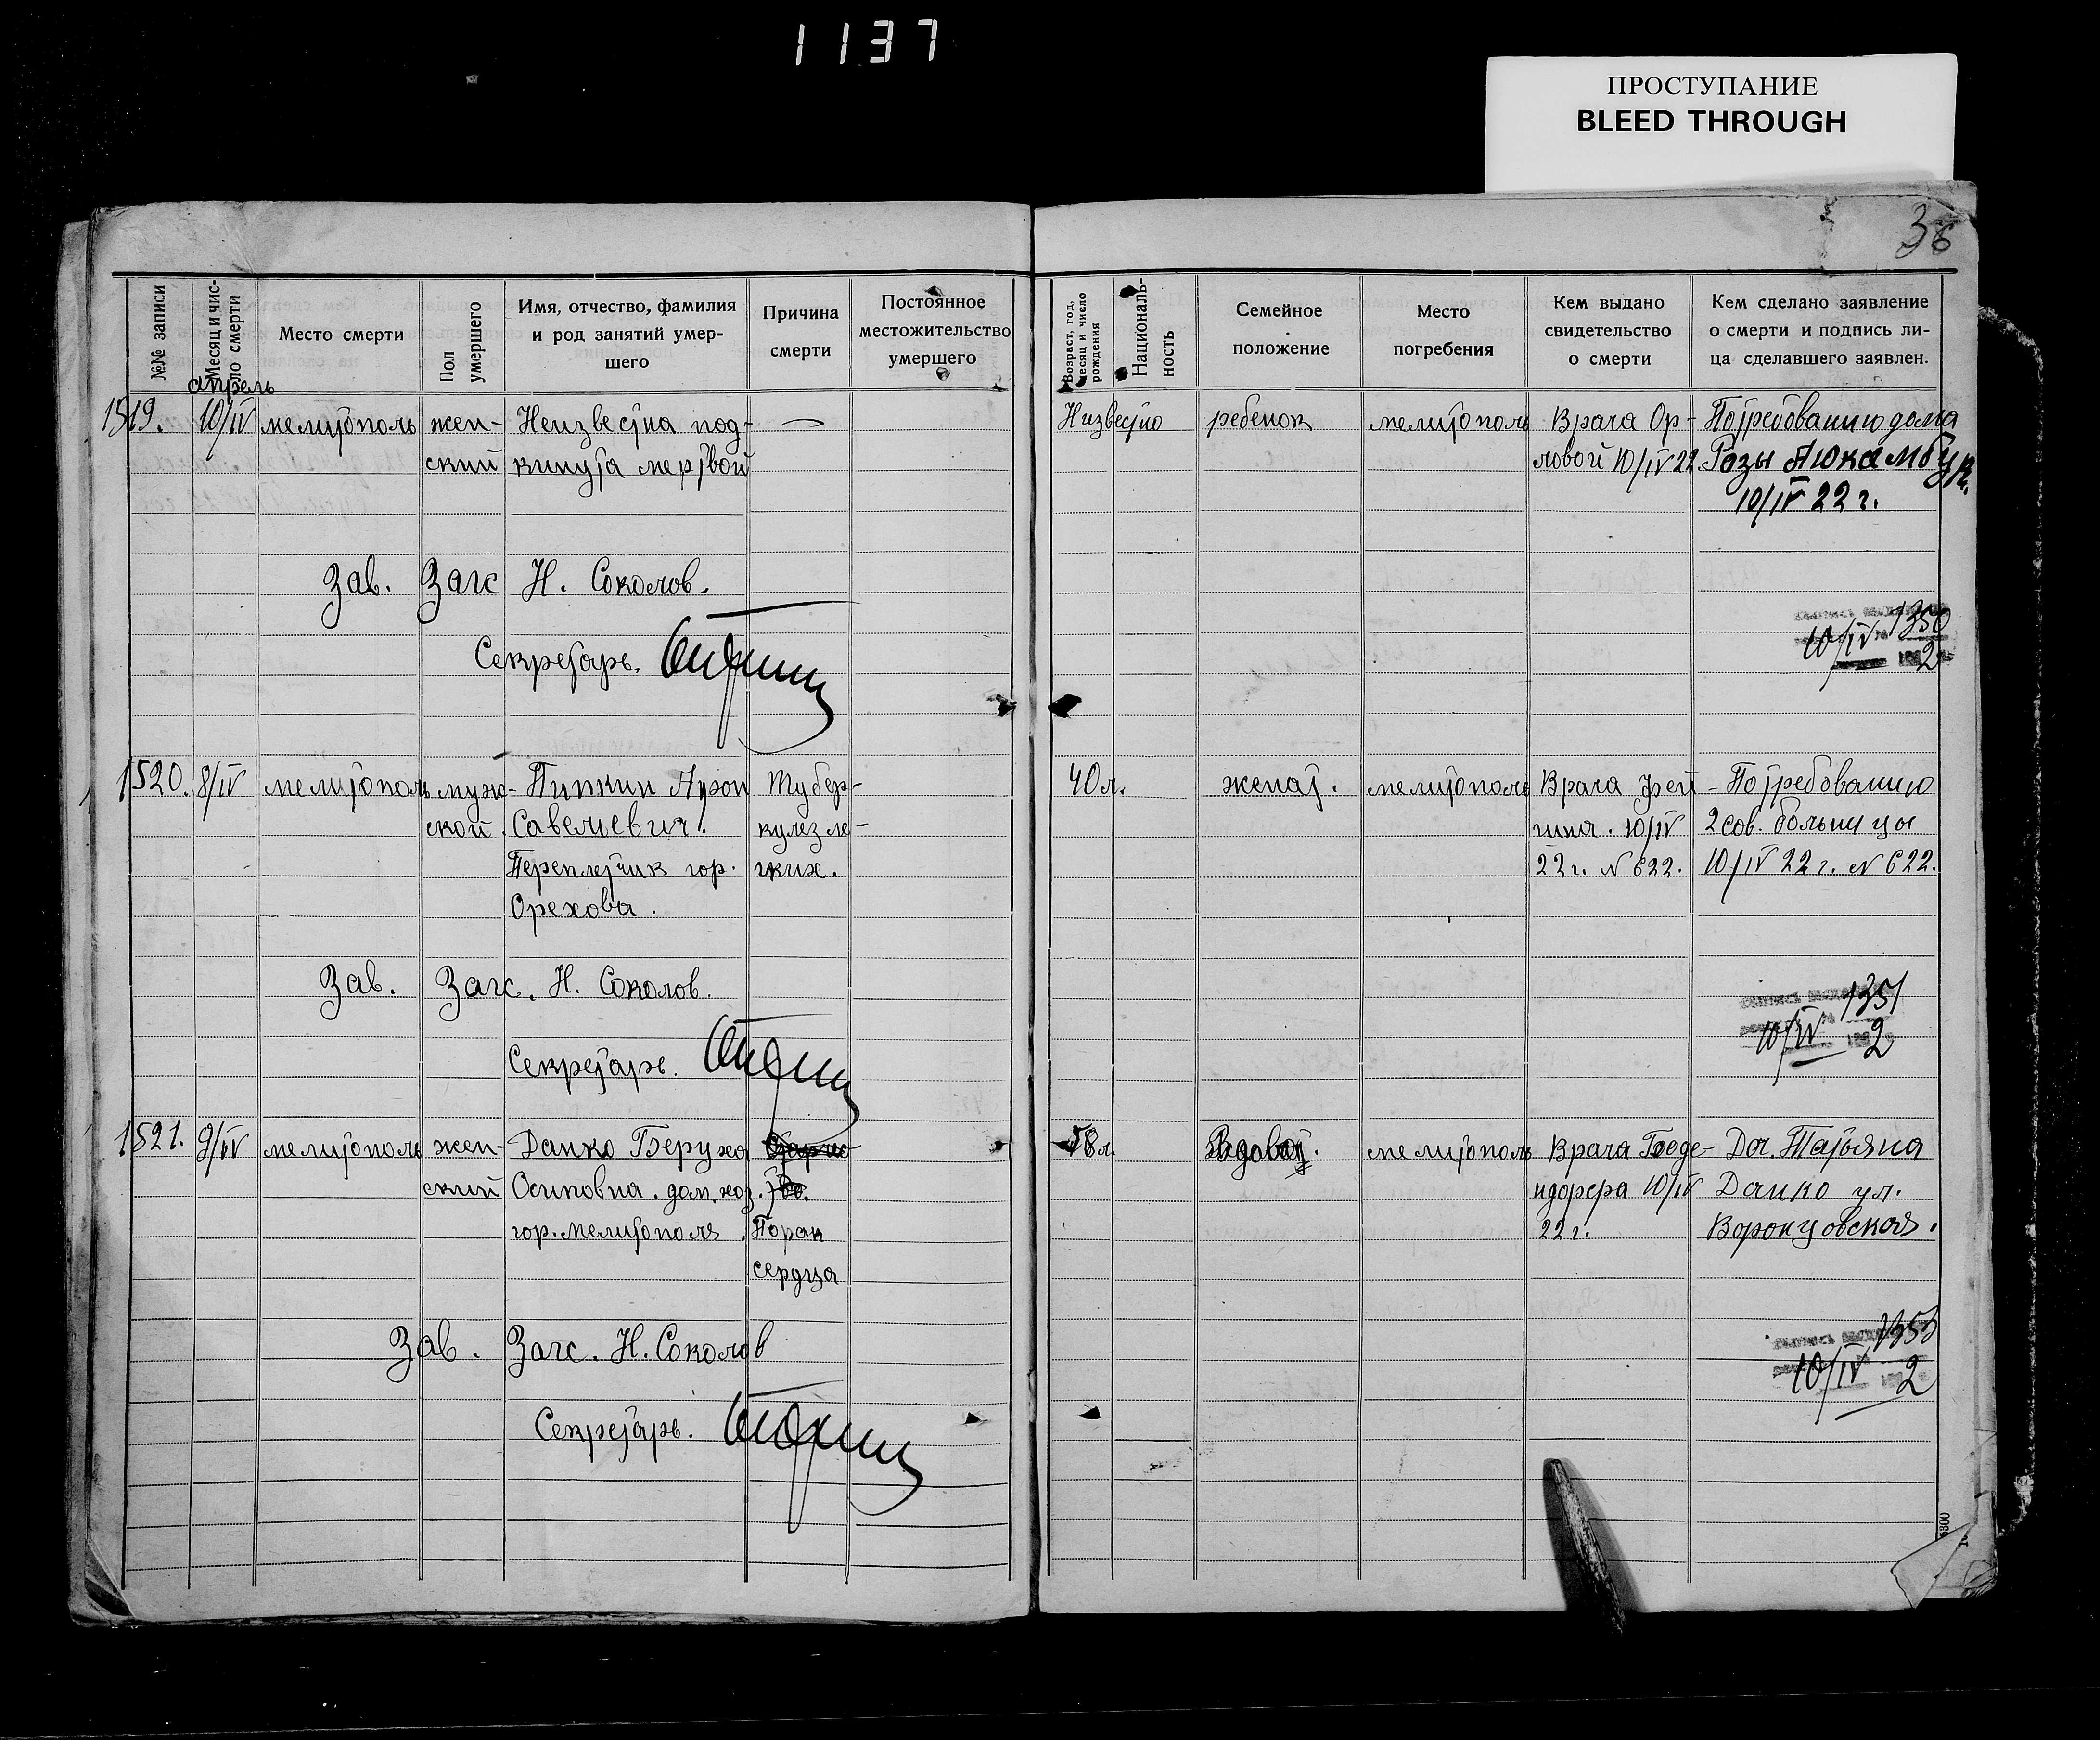 1137
ПРОСТУПАНИЕ
BLEED THROUGH
36
№№ записи
Месяц и чис-
ло смерти
Место смерти
Пол
умершего
Имя, отчество, фамилия
и род занятий умер-
шего
Причина
смерти
Постоянное
местожительство
умершего
Возраст, год,
месяц и число
рождения
Националь-
ность
Семейное
положение
Место
погребения
Кем выдано
свидетельство
о смерти
Кем сделано заявление
о смерти и подпись ли-
ца сделавшего заявлен.
апрель
1519. 10/IV мелитополь жен- Неизвестна под- — Низвестно ребенок мелитополь Врача Ор- По требованию дома
ский кинута мертвой ловой 10/IV 22 Розы
10/IV 22 г.
Зав. Загс Н. Соколов.
1350
10/IV 2
Секретарь.
1520. 8/IV мелитополь муж- Пипкин Арон Тубер- 40 л. женат. мелитополь Врача Фей- По требованию
ской Савельевич. кулез ле- гина. 10/IV 2 сов. больницы
Переплетчик гор. гких. 22 г. N 622. 10/IV 22 г. N 622.
Орехова.
Зав. Загс. Н. Соколов.
1351
10/IV 2
Секретарь.
1521. 9/IV мелитополь жен- Данко Беруха 58 л мелитополь Врача Дог. Татьяна
ский Осиповна. дом. хоз. 10/IV Данко ул.
гор. мелитополя. Порок 22 г. Воронцовская.
сердца
Зав. Загс. Н. Соколов
1353
10/IV 2
Секретарь.